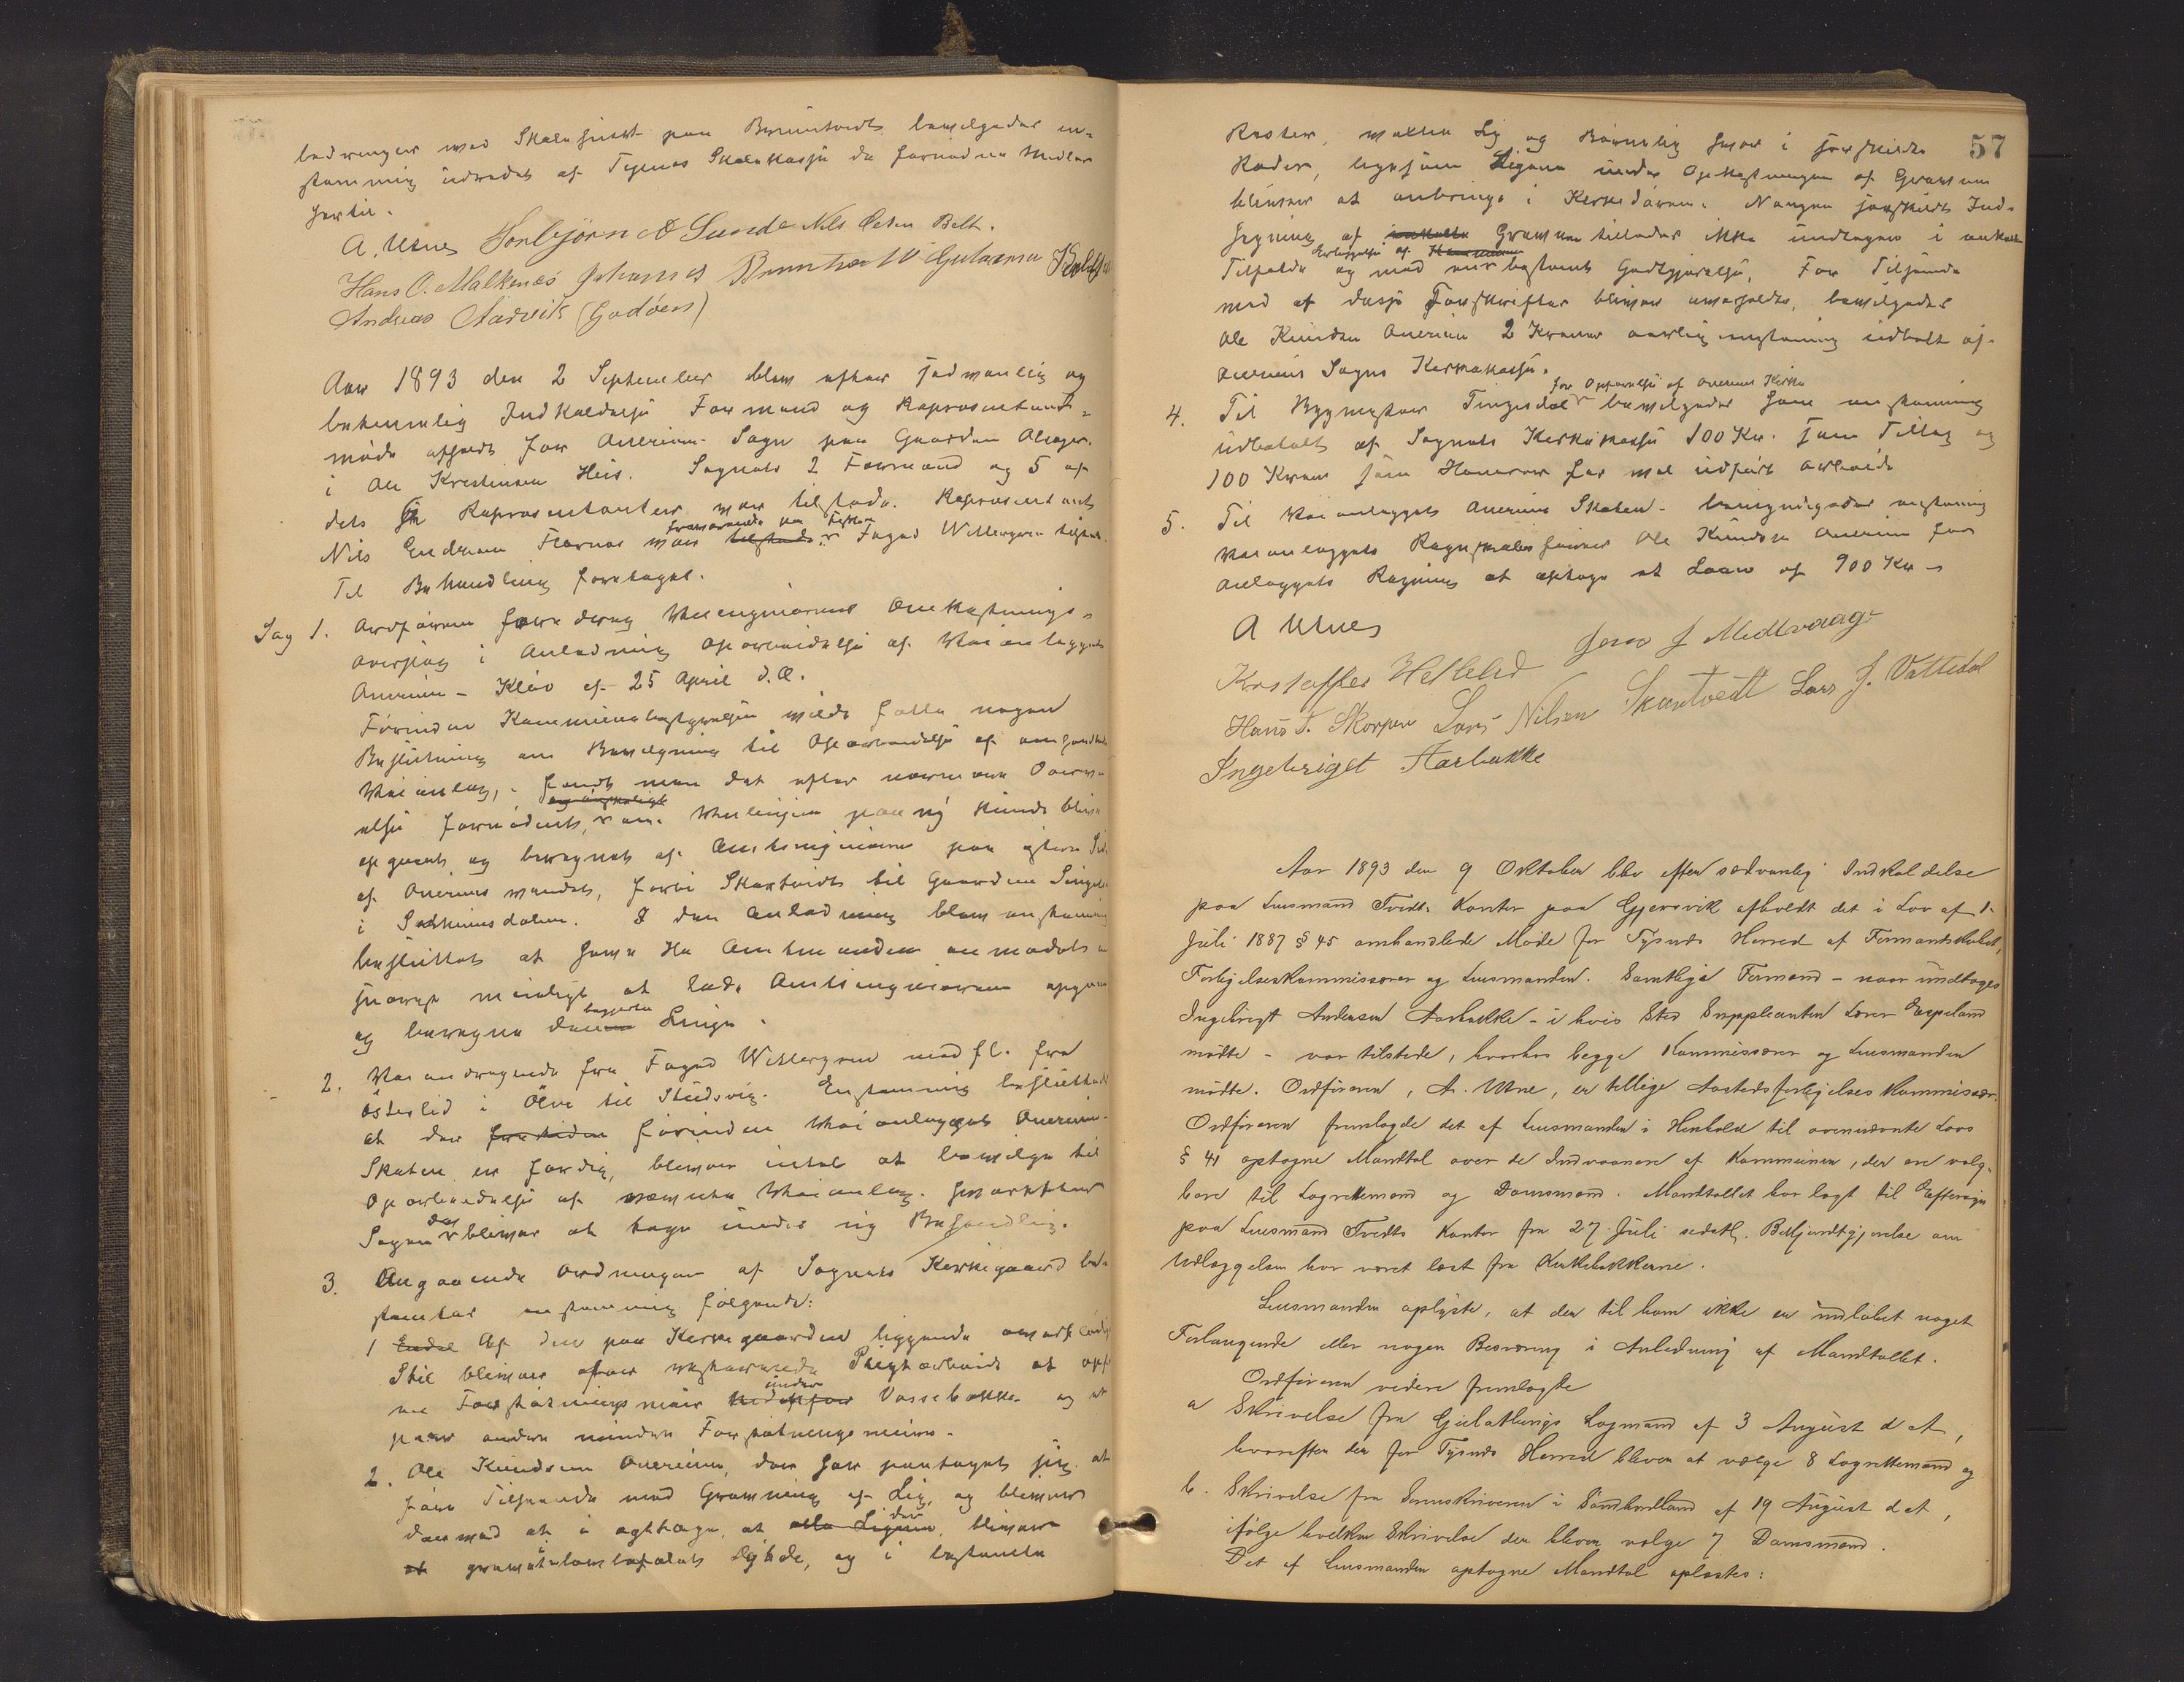 bedringer med Skolehuset paa Bruntvedt bevilgedes en-
stemmig udredet af Tysnes Skolekasse de fornødne Midler
hertil.
A. Utne Torbjörn O Lunde Nils Olsen Belt.
Hans O. Malkenes Johannes
Andreas Aarvik (Godöen)
Aar 1893 den 2 September blev efter sedvanlig og
betimelig Indkaldelse Formand og Repræsentant-
møde afholdt for Onereim Sogn paa Gaarden
i Ole Kristensen Hus. Sognets 2 Formænd og 5 af
dets Repræsentanter var tilstede. Repræsentant
Nils Endresen Flornes var fraværende paa Fiskeri
Til Behandling foretoges.
Sag 1. Ordføreren foredrog Veiingeniørens Omkostnings-
overslag i Anledning Oparbeidelse af Veianlægget
Onereim - Kleiv af 25 April d. A.
Førinden Kommunebestyrelsen vilde fatte nogen
Beslutning om Bevilgning til Oparbeidelse af omhandlede
Veianlæg, - fandt man det efter nærmere Overvei-
else fornødent, om Veilinjen paa ny kunde blive
opgaaet og beregnet af Amtsingeniøren paa østre Side
af Onereimsvandet, forbi Skartvedt til Gaarden Singels
i Sætreimsdalen. I den Anledning blev enstemmig
besluttet at Herr Amtmanden anmodes
snarest muligt at lade Amtsingeniøren opgaa
og beregne denne Linje.
2. Veiandragende fra Foged Wellergren med fl. fra
Østerlid i Ølve til Studsvig. Enstemmig besluttedes
at der førinden Veianlægget Onereim-
Skaten er færdig, bliver intet at bevilge til
Oparbeidelse af nævnte Veianlæg. hvorefter
Sagen da bliver at tage under ny Behandling.
3. Angaaende Ordningen af Sognets Kirkegaard be-
stemtes enstemmig følgende:
1 Af den paa Kirkegaarden liggende
Sten bliver ved Pligtarbeide at opføre
en Forstøtningsmur under Vossebakke og et
par andre mindre Forstøtningsmure.
2. Ole Knudsen Onereim, der har paataget sig at
føre Tilsyn med Gravning af Lig, og bliver
dermed at i agttage, at der bliver
gravet lovbefalet Dybde, og i bestemte
57
Raster, voxne Lig og Børnelig hver i særskilte
Rader, ligesom Ligene under Opkastningen af Graven
bliver at anbringe i Kirkedøren. Nogen særskilt Ind-
hegning af Graven tillades ikke undtagen i enkelte
Tilfælde og mod en bestemt Godtgjørelse. For Tilsynet
med at disse Forskrifter bliver overholdte, bevilgedes
Ole Knudsen Onereim 2 Kroner aarlig enstemmig udbetalt af
Onereims Sogns Kirkekasse.
4. Til Bygmester Tingsdal for Opførelse af Onereim Kirke bevilgedes enstemmig
udbetalt af Sognets Kirkekasse 100 Kr. som Tillæg og
100 Kroner som Honorar for vel udført Arbeide
5. Til Veianlægget Onereim Skaten - bemyndigedes enstemmig
Veianlæggets Regnskabsfører Ole Knudsen Onereim for
Anlæggets Regning at optage et Laan af 900 Kr -
A Utne
Jens J Medtvaag
Kristoffer Helleld
Hans T. Skorpen Lars Nilsen Skartvedt Lars J. Vattedal
Ingebrigt Aarbakke
Aar 1893 den 9 Oktober blev efter sædvanlig Indkaldelse
paa Lensmand Tvedts Kontor paa Gjersvik afholdt det i Lov af 1.
Juli 1887 § 45 omhandlede Møde for Tysnes Herred af Formandskabet,
Forligelseskommissærer og Lensmanden. Samtlige Formænd - naar undtages
Ingebrigt Andersen Aarbakke - i hvis Sted Suppleanten Lærer Espeland
mødte - var tilstede, hvorhos begge Kommissærer og Lensmanden
mødte. Ordføreren, A. Utne, er tillige Aastedsforligelseskommissær.
Ordføreren fremlagde det af Lensmanden i Henhold til ovennævnte Lovs
§ 41 optagne Mandtal over de Indvaanere af Kommunen, der ere valg-
bare til Lagrettemænd og Domsmænd. Mandtallet har lagt til Eftersyn
paa Lensmand Tvedts Kontor fra 27 Juli sidstl. Bekjendtgjørelse om
Udlæggelsen har været læst fra Kirkebakkerne.
Lensmanden oplyste, at der til ham ikke er indløbet noget
Forlangende eller nogen Besværing i Anledning af Mandtallet.
Ordføreren videre fremlagde
a Skrivelse fra Gulathings Lagmand af 3 August d A,
hvorefter der for Tysnes Herred bliver at vælge 8 Lagrettemænd og
b. Skrivelse fra Sorenskriveren i Søndhordland af 19 August d A,
ifølge hvilken Skrivelse der bliver vælge 7 Domsmænd.
Det af Lensmanden optagne Mandtal oplæstes: